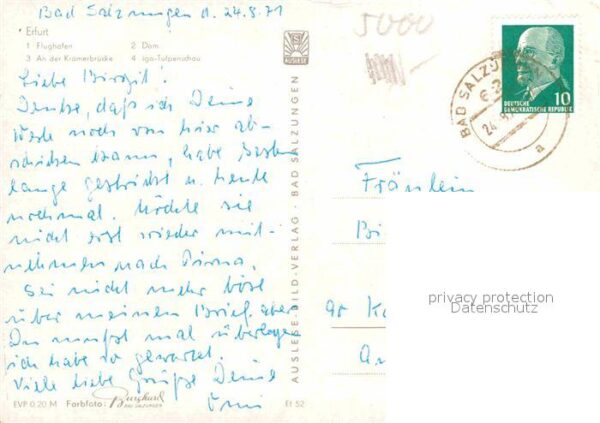 Bad Salzungen d. 24.8.71
Erfurt
1 Flughafen 2 Dom
3 An der Krämerbrücke 4 iga-Tulpenschau
Liebe Birgit!
Denke, daß ich Deine
Weste noch von hier ab-
schicken kann, habe gestern
lange gestrickt u. heute
nochmal. Möchte sie
nicht erst wieder mit-
nehmen nach Pirna.
Sei nicht mehr böse
über meinen Brief, aber
Du mußt mal überlegen
ich habe so gewartet.
Viele liebe Grüße Deine
Omi
EVP 0,20 M Farbfoto: Burghard
BAD SALZUNGEN
Et 52
AUSLESE
AUSLESE-BILD-VERLAG · BAD SALZUNGEN
5000
BAD SALZU
62
24.
a
DEUTSCHE
DEMOKRATISCHE REPUBLIK
10
Fräulein
Bi
privacy protection
Datenschutz